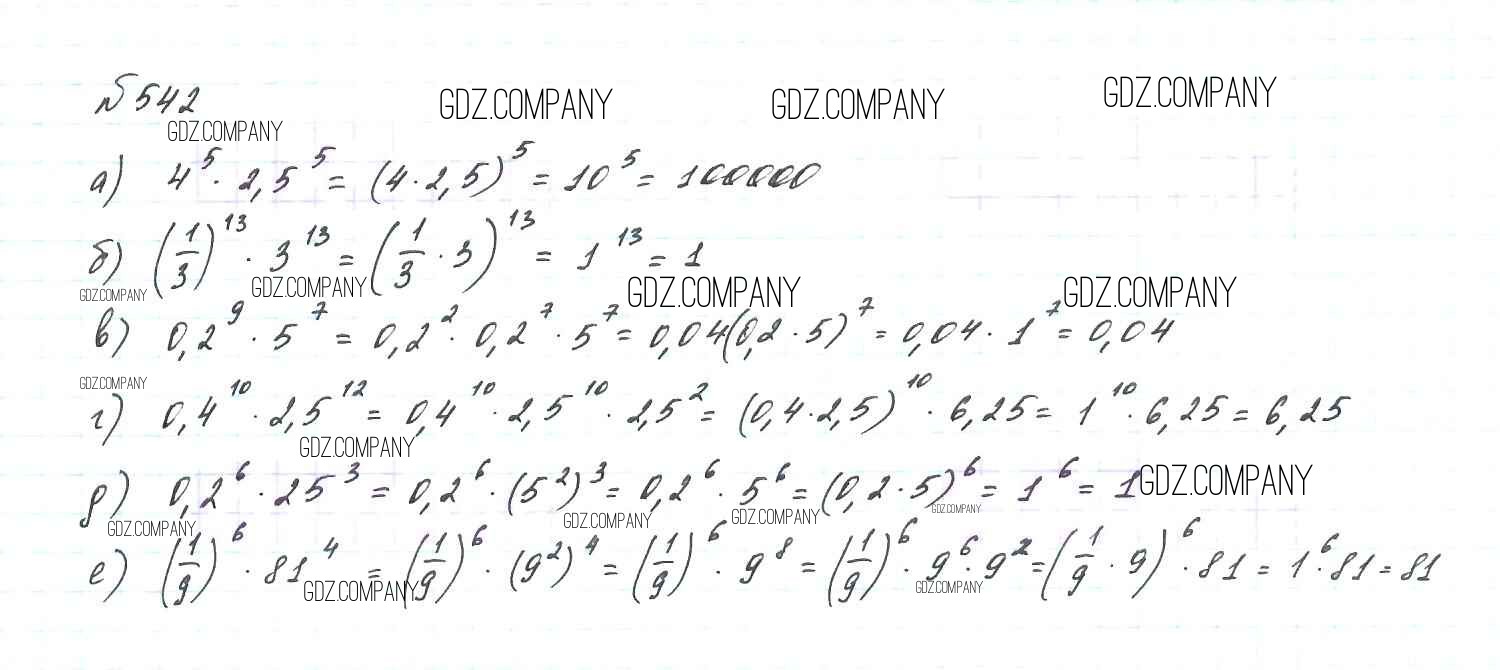 № 542
GDZ.COMPANY GDZ.COMPANY GDZ.COMPANY
GDZ.COMPANY
а) 4⁵ · 2,5⁵ = (4 · 2,5)⁵ = 10⁵ = 100000
б) (1/3)¹³ · 3¹³ = (1/3 · 3)¹³ = 1¹³ = 1
GDZ.COMPANY GDZ.COMPANY GDZ.COMPANY GDZ.COMPANY
в) 0,2⁹ · 5⁷ = 0,2² · 0,2⁷ · 5⁷ = 0,04(0,2 · 5)⁷ = 0,04 · 1⁷ = 0,04
GDZ.COMPANY
г) 0,4¹⁰ · 2,5¹² = 0,4¹⁰ · 2,5¹⁰ · 2,5² = (0,4 · 2,5)¹⁰ · 6,25 = 1¹⁰ · 6,25 = 6,25
GDZ.COMPANY
д) 0,2⁶ · 25³ = 0,2⁶ · (5²)³ = 0,2⁶ · 5⁶ = (0,2 · 5)⁶ = 1⁶ = 1 GDZ.COMPANY
GDZ.COMPANY GDZ.COMPANY GDZ.COMPANY GDZ.COMPANY
е) (1/9)⁶ · 81⁴ = (1/9)⁶ · (9²)⁴ = (1/9)⁶ · 9⁸ = (1/9)⁶ · 9⁶ · 9² = (1/9 · 9)⁶ · 81 = 1⁶ · 81 = 81
GDZ.COMPANY GDZ.COMPANY